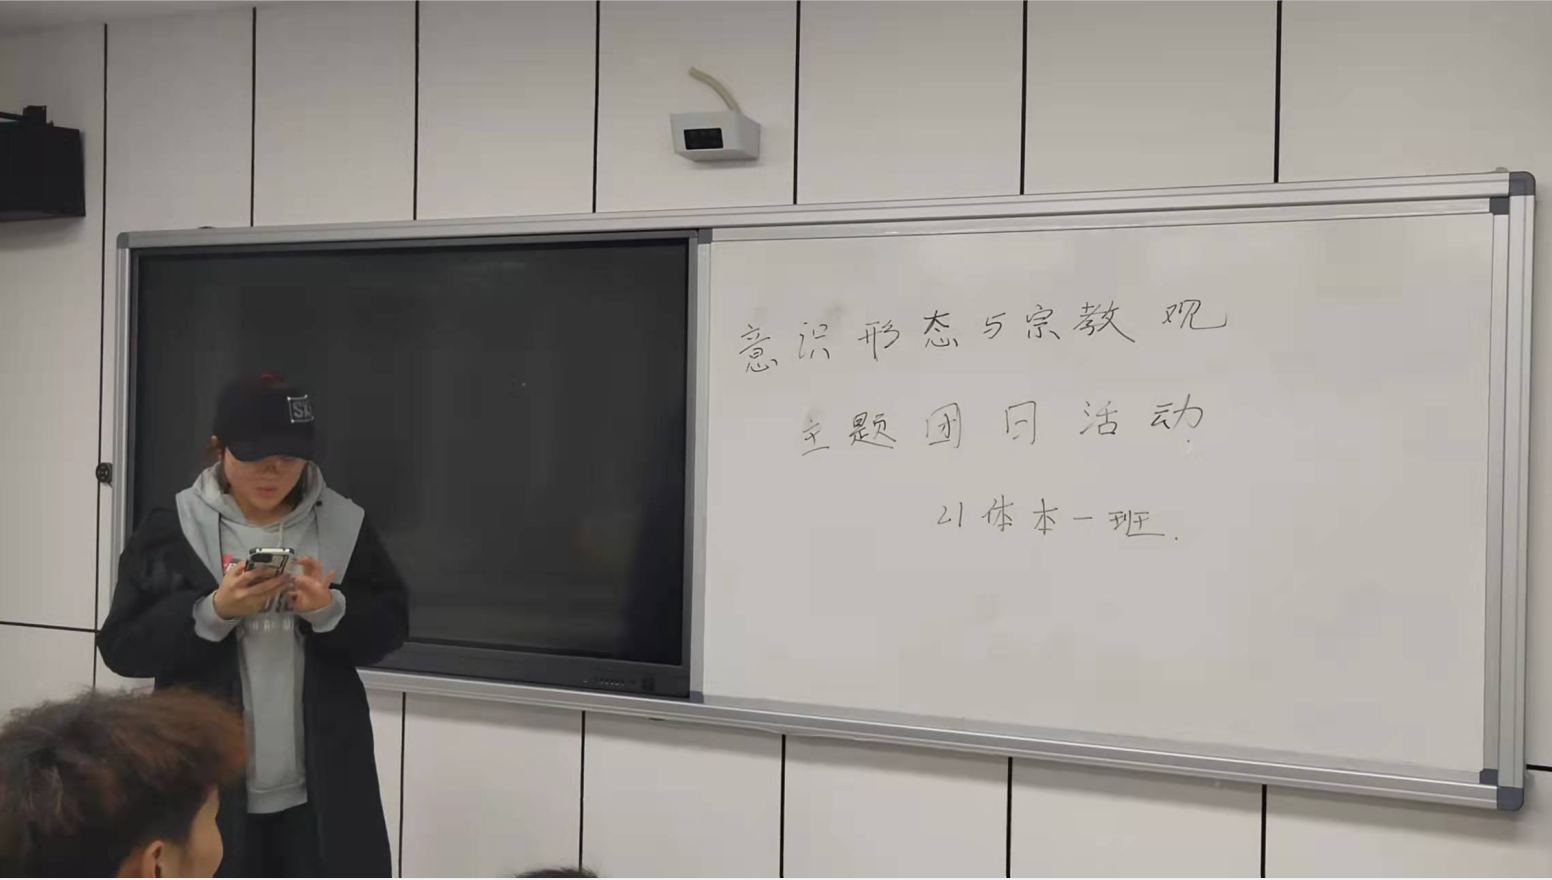 意识形态与宗教观
主题团日活动
21体本一班.
SK